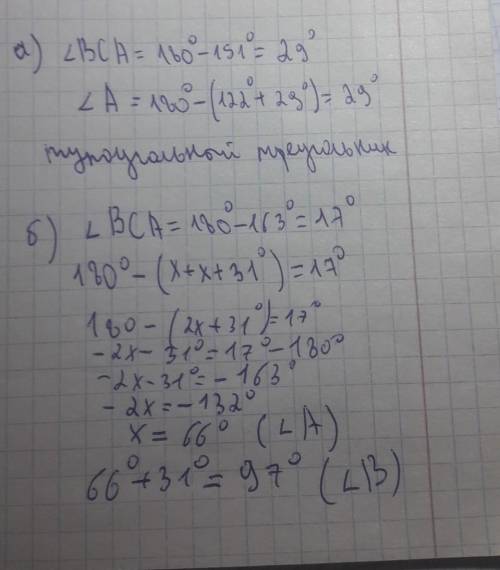 а) ∠BCA = 180° - 151° = 29°
∠A = 180° - (122° + 29°) = 29°
тупоугольный треугольник
б) ∠BCA = 180° - 163° = 17°
180° - (x + x + 31°) = 17°
180 - (2x + 31°) = 17°
-2x - 31° = 17° - 180°
-2x - 31° = -163°
-2x = -132°
x = 66° (∠A)
66° + 31° = 97° (∠B)